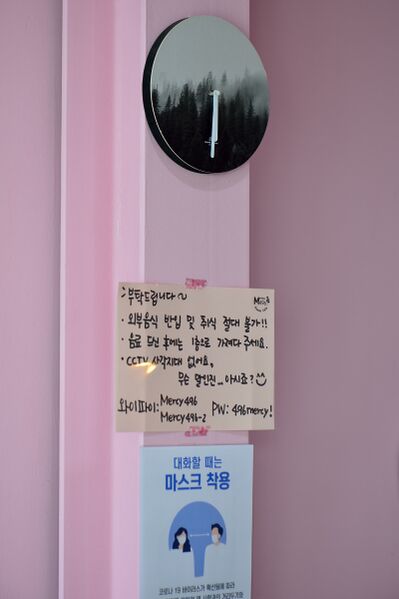 Mercy
부탁드립니다~
· 외부음식 반입 및 취식 절대 불가!!
· 음료 드신 후에는 1층으로 가져다 주세요.
· CCTV 사각지대 없어요,
무슨 말인진... 아시죠?
와이파이: Mercy496 PW: 496mercy!
Mercy496-2
대화할 때는
마스크 착용
코로나 19 바이러스가 확산됨에 따라